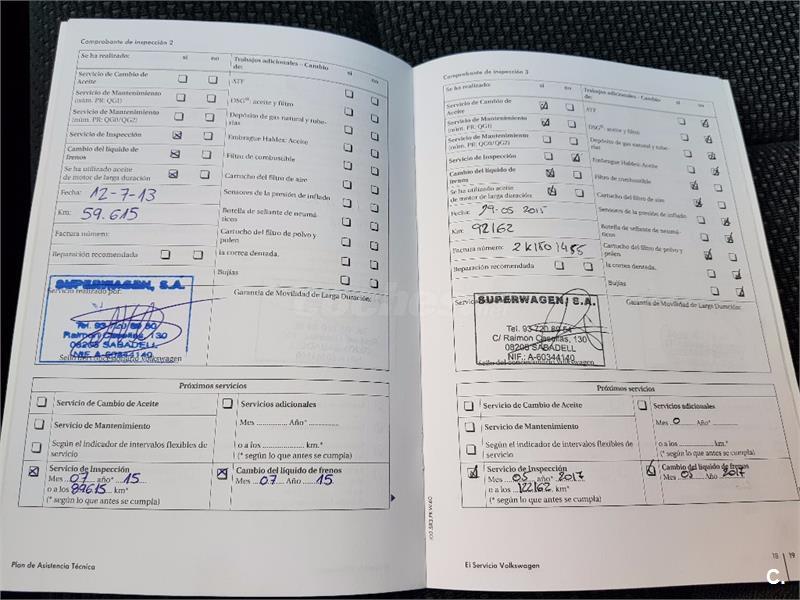 Comprobante de inspección 2
Se ha realizado: sí no
Servicio de Cambio de
Aceite
Servicio de Mantenimiento
(núm. PR: QG1)
Servicio de Mantenimiento
(núm. PR: QG0/QG2)
Servicio de Inspección
Cambio del líquido de
frenos
Se ha utilizado aceite
de motor de larga duración
Fecha: 12-7-13
Km: 59.615
Factura número:
Reparación recomendada
Trabajos adicionales - Cambio
de: sí no
ATF
DSG®: aceite y filtro
Depósito de gas natural y tube-
rías
Embrague Haldex: Aceite
Filtro de combustible
Cartucho del filtro de aire
Sensores de la presión de inflado
Botella de sellante de neumá-
ticos
Cartucho del filtro de polvo y
polen
la correa dentada.
Bujías
Servicio realizado por:
SUPERWAGEN, S.A.
Raimon Casellas, 130
08205 SABADELL
NIF. A-60344140
Garantía de Movilidad de Larga Duración:
Próximos servicios
Servicio de Cambio de Aceite
Servicio de Mantenimiento
Según el indicador de intervalos flexibles de
servicio
Servicio de Inspección
Mes 07 año* 15
o a los 89615 km*
(* según lo que antes se cumpla)
Servicios adicionales
Mes Año*
o a los km.*
(* según lo que antes se cumpla)
Cambio del líquido de frenos
Mes 07 Año 15
Plan de Asistencia Técnica
Comprobante de inspección 3
Se ha realizado: sí no
Servicio de Cambio de
Aceite
Servicio de Mantenimiento
(núm. PR: QG1)
Servicio de Mantenimiento
(núm. PR: QG0/QG2)
Servicio de Inspección
Cambio del líquido de
frenos
Se ha utilizado aceite
de motor de larga duración
Fecha: 29-05 2015
Km: 92162
Factura número:
Reparación recomendada
Trabajos adicionales - Cambio
de: sí no
ATF
DSG®: aceite y filtro
Depósito de gas natural y tube-
rías
Embrague Haldex: Aceite
Filtro de combustible
Cartucho del filtro de aire
Sensores de la presión de inflado
Botella de sellante de neumá-
ticos
Cartucho del filtro de polvo y
polen
la correa dentada.
Bujías
SUPERWAGEN, S.A.
Tel. 93 720 89 54
C/ Raimon Casellas, 130
08205 SABADELL
NIF.: A-60344140
Garantía de Movilidad de Larga Duración:
Próximos servicios
Servicio de Cambio de Aceite
Servicio de Mantenimiento
Según el indicador de intervalos flexibles de
servicio
Servicio de Inspección
Mes 05 año* 2017
o a los 122162 km*
(* según lo que antes se cumpla)
Servicios adicionales
Mes Año*
o a los km.*
(* según lo que antes se cumpla)
Cambio del líquido de frenos
Mes 05 Año 2017
El Servicio Volkswagen
18 19
C.